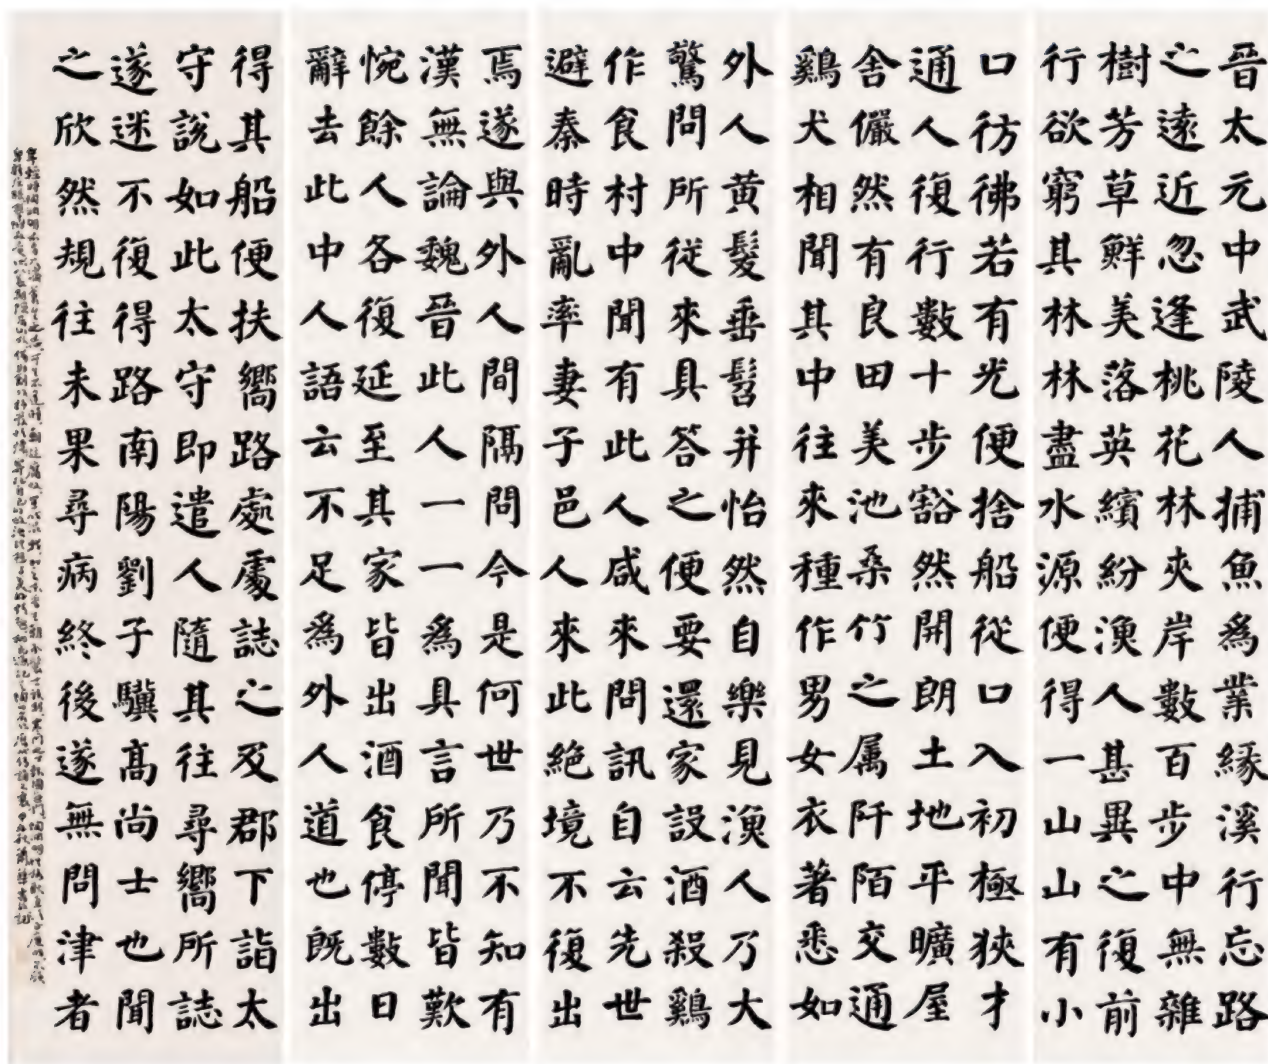 晉太元中武陵人捕魚爲業緣溪行忘路
之遠近忽逢桃花林夾岸數百步中無雜
樹芳草鮮美落英繽紛漁人甚異之復前
行欲窮其林林盡水源便得一山山有小
口彷彿若有光便捨船從口入初極狹才
通人復行數十步豁然開朗土地平曠屋
舍儼然有良田美池桑竹之属阡陌交通
鷄犬相聞其中往來種作男女衣著悉如
外人黄髮垂髫并怡然自樂見漁人乃大
驚問所從來具答之便要還家設酒殺鷄
作食村中聞有此人咸來問訊自云先世
避秦時亂率妻子邑人來此絕境不復出
焉遂與外人間隔問今是何世乃不知有
漢無論魏晉此人一一爲具言所聞皆歎
惋餘人各復延至其家皆出酒食停數日
辭去此中人語云不足爲外人道也既出
得其船便扶嚮路處處誌之及郡下詣太
守説如此太守即遣人隨其往尋嚮所誌
遂迷不復得路南陽劉子驥高尚士也聞
之欣然規往未果尋病終後遂無問津者